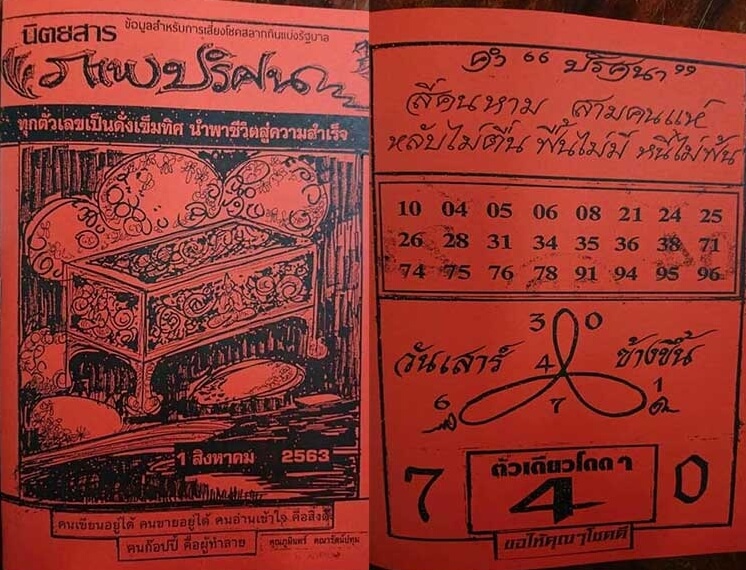 นิตยสาร
ข้อมูลสำหรับการเสี่ยงโชคสลากกินแบ่งรัฐบาล
ภาพปริศนา
ทุกตัวเลขเป็นดั่งเข็มทิศ นำพาชีวิตสู่ความสำเร็จ
1 สิงหาคม 2563
คนเขียนอยู่ได้ คนขายอยู่ได้ คนอ่านเข้าใจ คือสิ่งดี
คนก๊อปปี้ คือผู้ทำลาย
คุณภูมินทร์ คณารัตน์ปทุม
คำ “ ปริศนา ”
สี่คนหาม สามคนแห่
หลับไม่ตื่น ฟื้นไม่มี หนีไม่พ้น
10 04 05 06 08 21 24 25
26 28 31 34 35 36 38 71
74 75 76 78 91 94 95 96
3 0
วันเสาร์ 4 ข้างขึ้น
6 7 1
7 ตัวเดียวโดดๆ 0
4
ขอให้คุณๆโชคดี